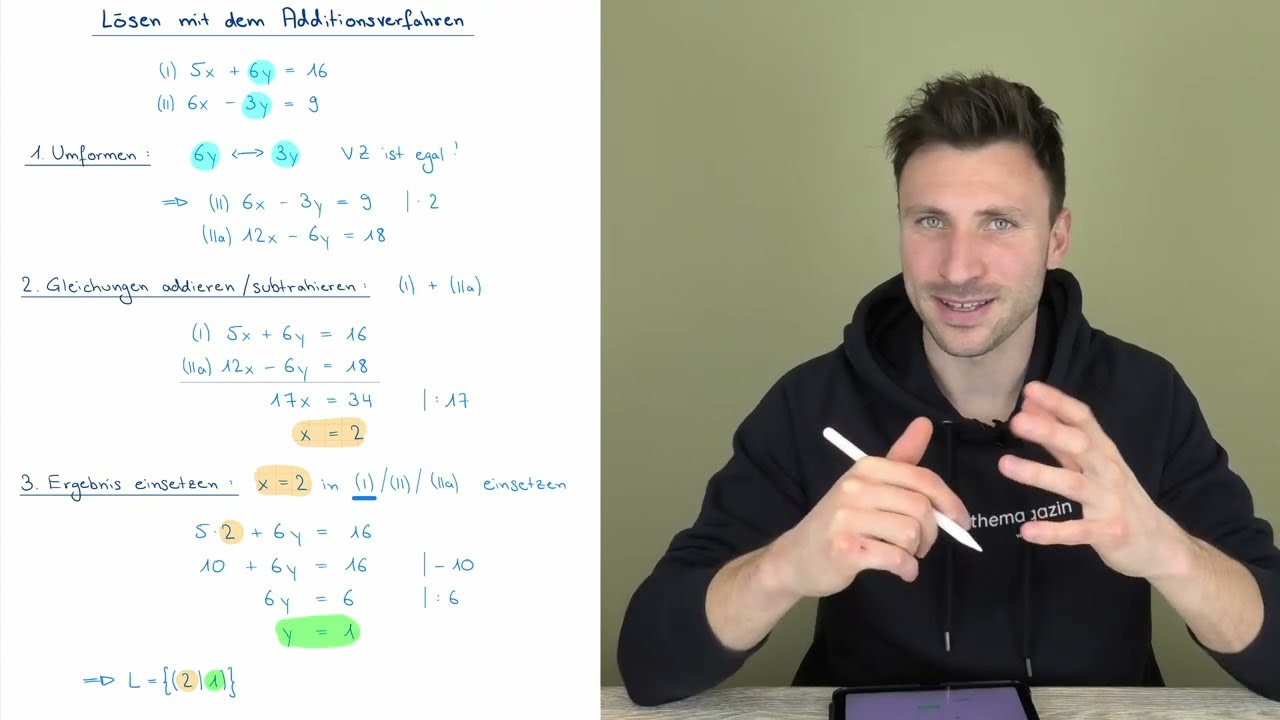 Lösen mit dem Additionsverfahren
(I) 5x + 6y = 16
(II) 6x - 3y = 9
1. Umformen: 6y ↔ 3y VZ ist egal!
⇒ (II) 6x - 3y = 9 | · 2
(IIa) 12x - 6y = 18
2. Gleichungen addieren/subtrahieren: (I) + (IIa)
(I) 5x + 6y = 16
(IIa) 12x - 6y = 18
17x = 34 | : 17
x = 2
3. Ergebnis einsetzen: x = 2 in (I)/(II)/(IIa) einsetzen
5 · 2 + 6y = 16
10 + 6y = 16 | - 10
6y = 6 | : 6
y = 1
⇒ L = {(2|1)}